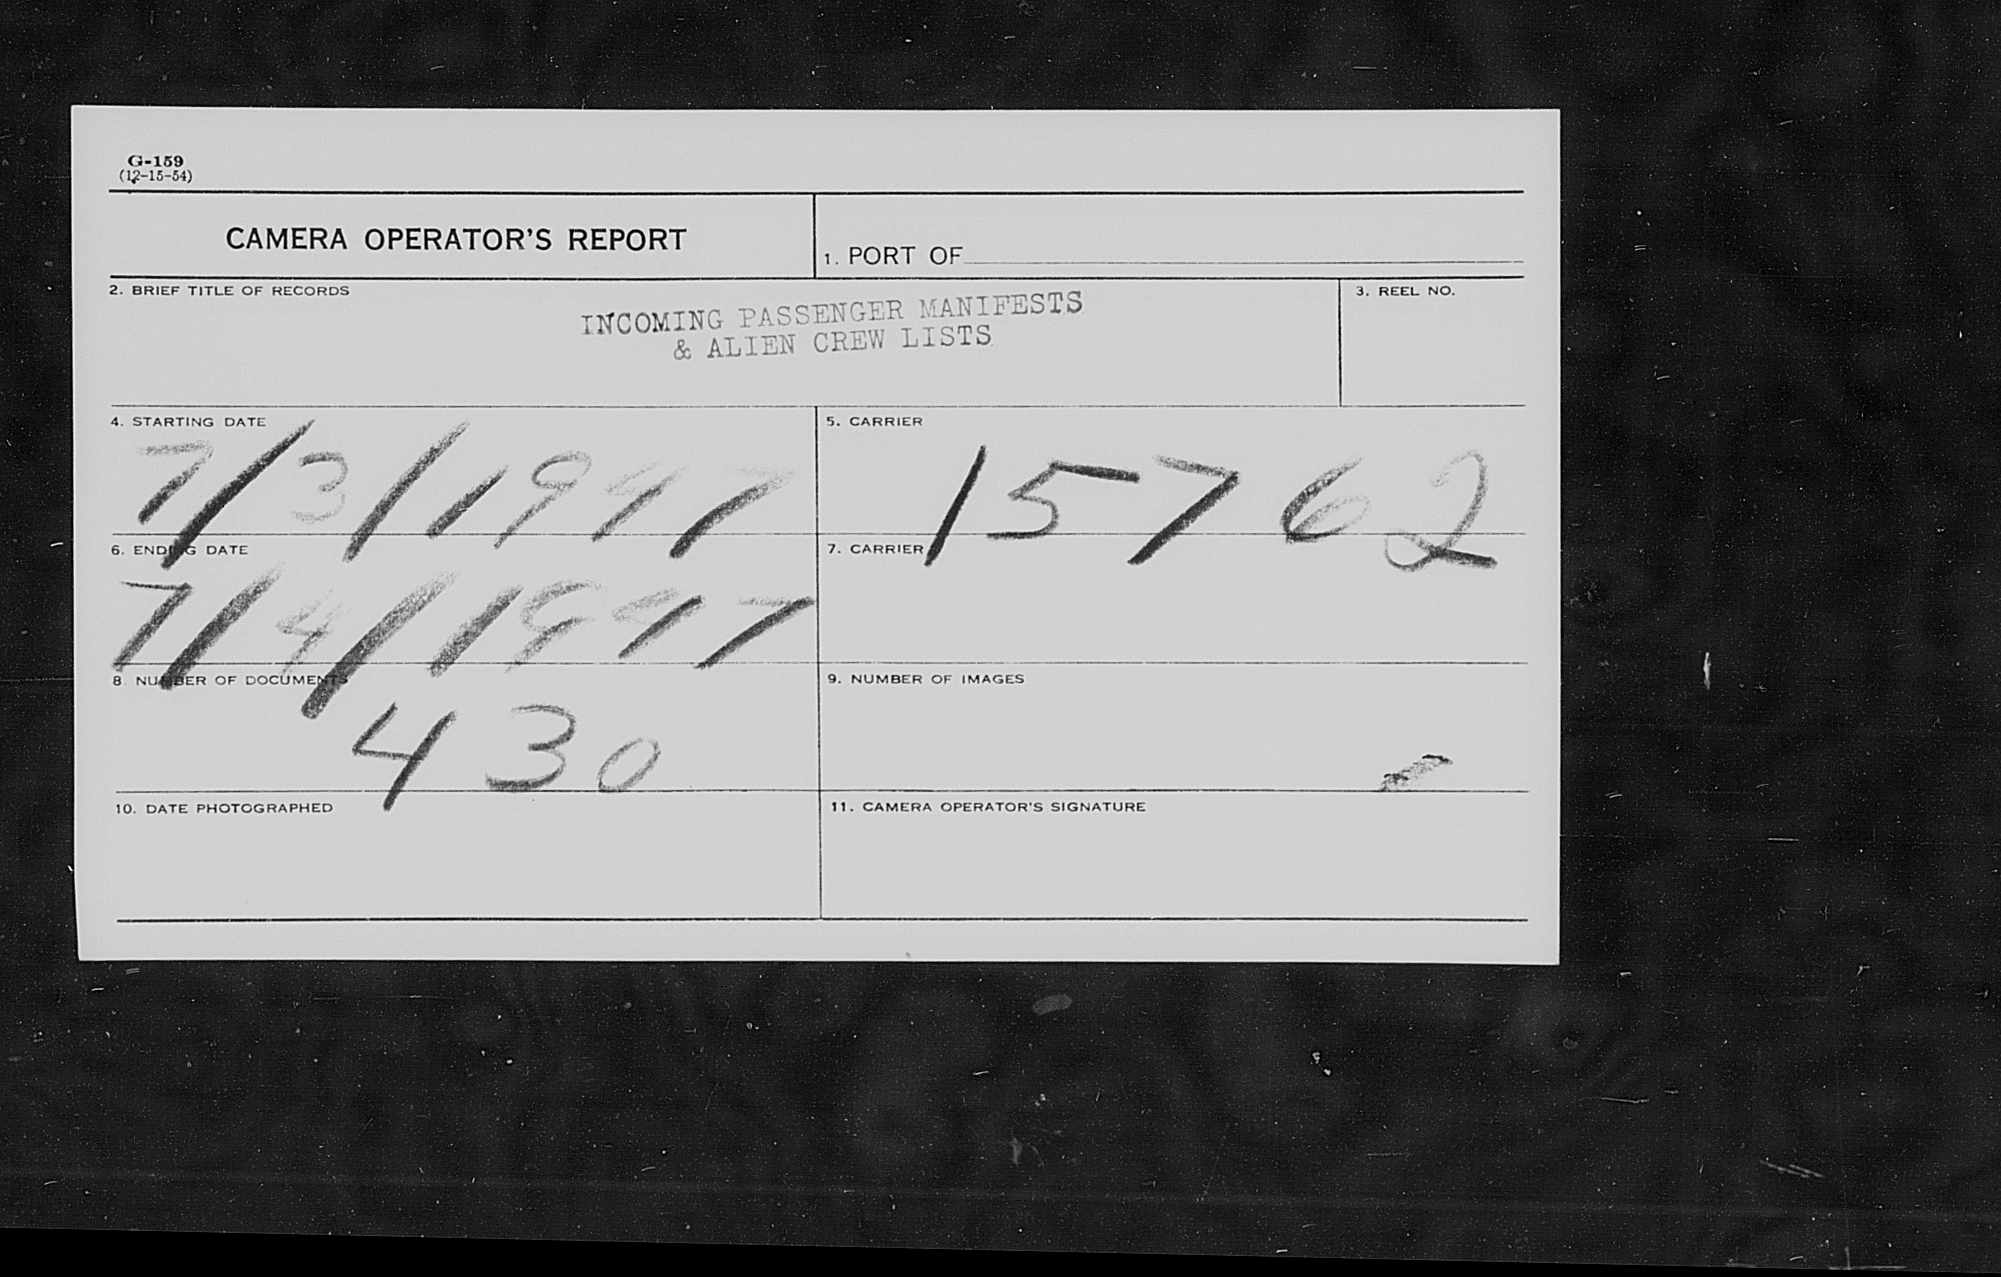 G-159
(12-15-54)
CAMERA OPERATOR'S REPORT
1. PORT OF
2. BRIEF TITLE OF RECORDS
INCOMING PASSENGER MANIFESTS
& ALIEN CREW LISTS
3. REEL NO.
4. STARTING DATE
7/3/1947
5. CARRIER
15762
6. ENDING DATE
7/4/1947
7. CARRIER
8 NUMBER OF DOCUMENTS
430
9. NUMBER OF IMAGES
10. DATE PHOTOGRAPHED
11. CAMERA OPERATOR'S SIGNATURE